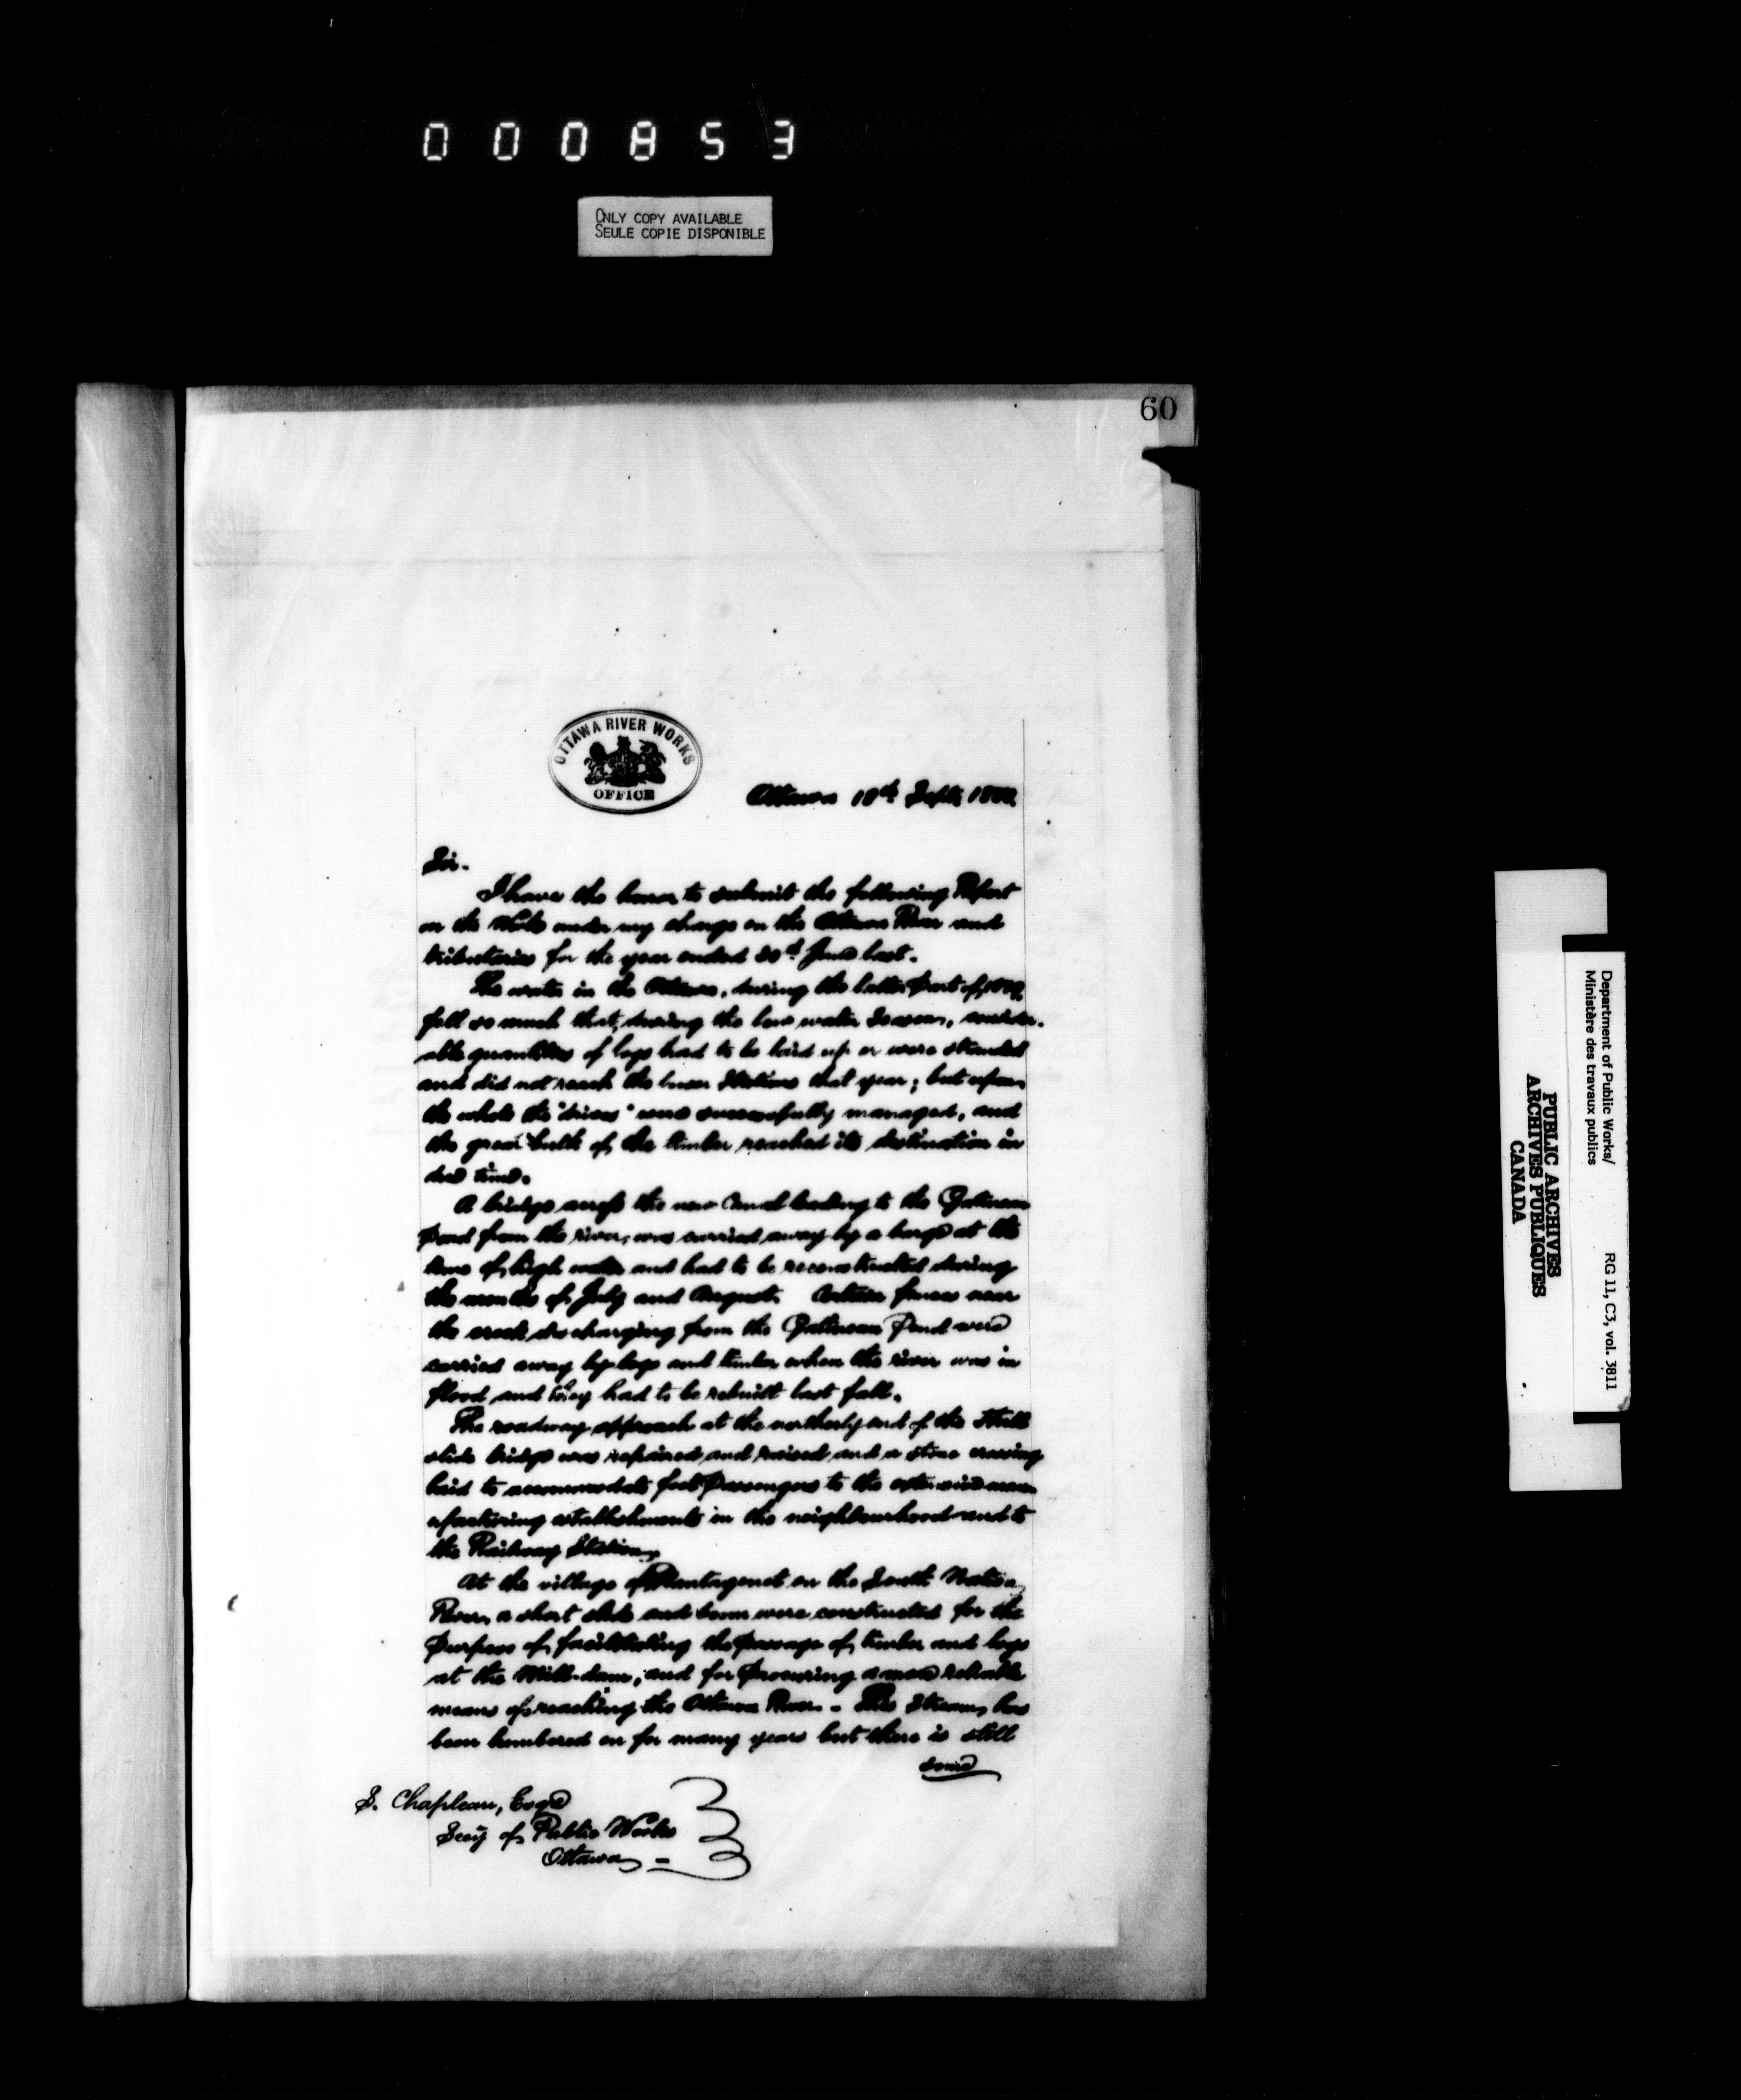 000853
ONLY COPY AVAILABLE
SEULE COPIE DISPONIBLE
60
OTTAWA RIVER WORKS
OFFICE
Ottawa 18th Septr.
Sir.
I have the honor to submit the following Report
on the Works under my charge on the Ottawa River and
tributaries for the year ended 30th June last.
The water in the Ottawa, during the latter part of
fell so much that, during the low water season, consider-
able quantities of logs had to be laid up or were stranded
and did not reach the boom Stations that year; but upon
the whole the "drives" were successfully managed, and
the great bulk of the timber reached its destination in
due time.
A bridge across the new Canal leading to the Gatineau
Pond from the river, was carried away by a barge at the
time of high water and had to be reconstructed during
the months of July and August. Certain fences near
the creek discharging from the Gatineau Pond were
carried away by logs and timber when the river was in
flood and they had to be rebuilt last fall.
The roadway approach at the northerly end of the Hull
slide bridge was repaired and raised and a stone crossing
laid to accommodate foot passengers to the extensive man-
ufacturing establishments in the neighbourhood and to
the Railway Station.
At the village of Plantagenet on the South Nation
River, a short slide and boom were constructed for the
purpose of facilitating the passage of timber and logs
at the Mill-dam, and for procuring a more reliable
means of reaching the Ottawa River. - This Stream has
been lumbered on for many years but there is still
some
S. Chapleau, Esqre
Secy of Public Works
Ottawa -
Department of Public Works/
Ministère des travaux publics
RG 11, C3, vol. 3811
PUBLIC ARCHIVES
ARCHIVES PUBLIQUES
CANADA